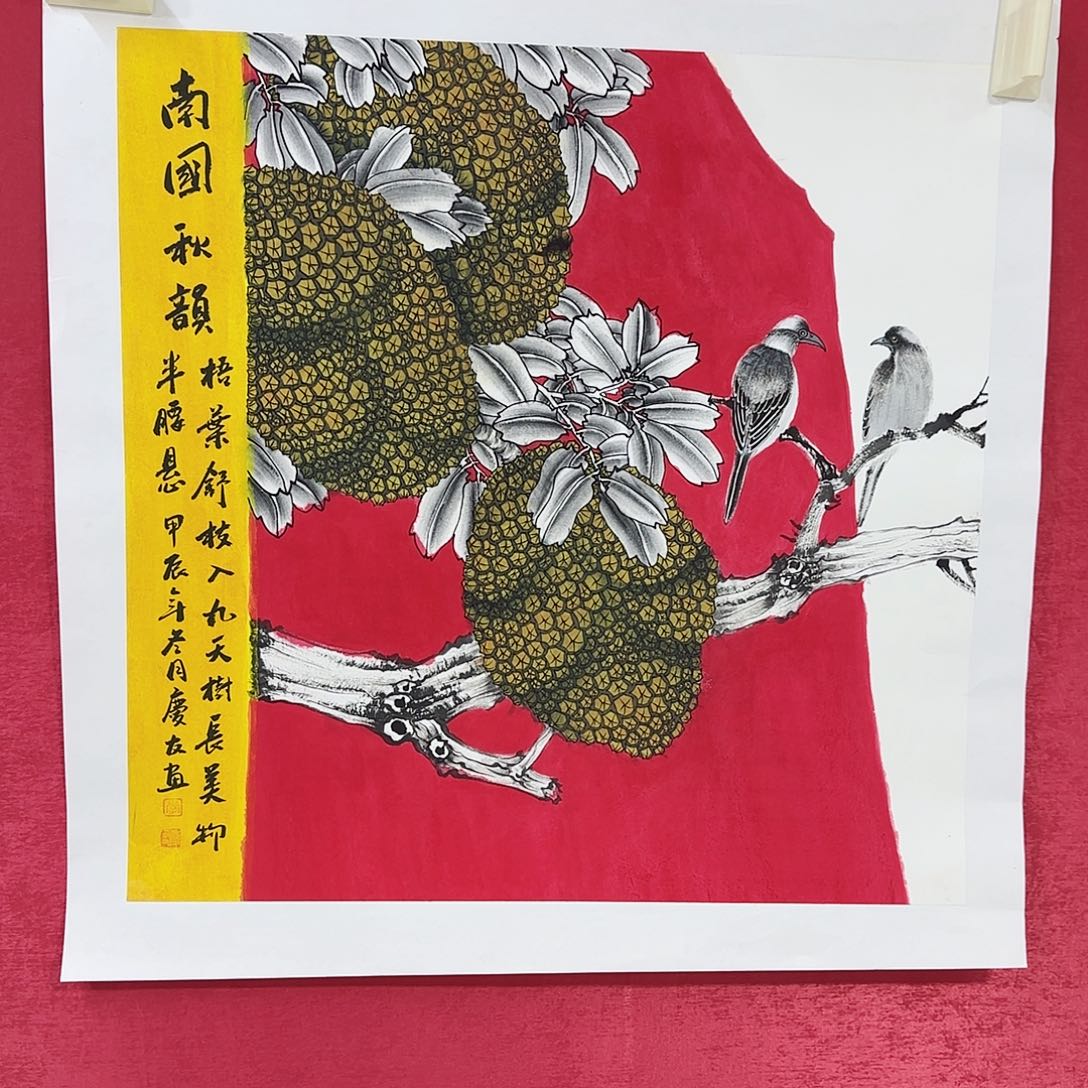 南國秋韻
梧葉舒枝入九天樹長美物
半腰懸甲辰年叁月慶友画